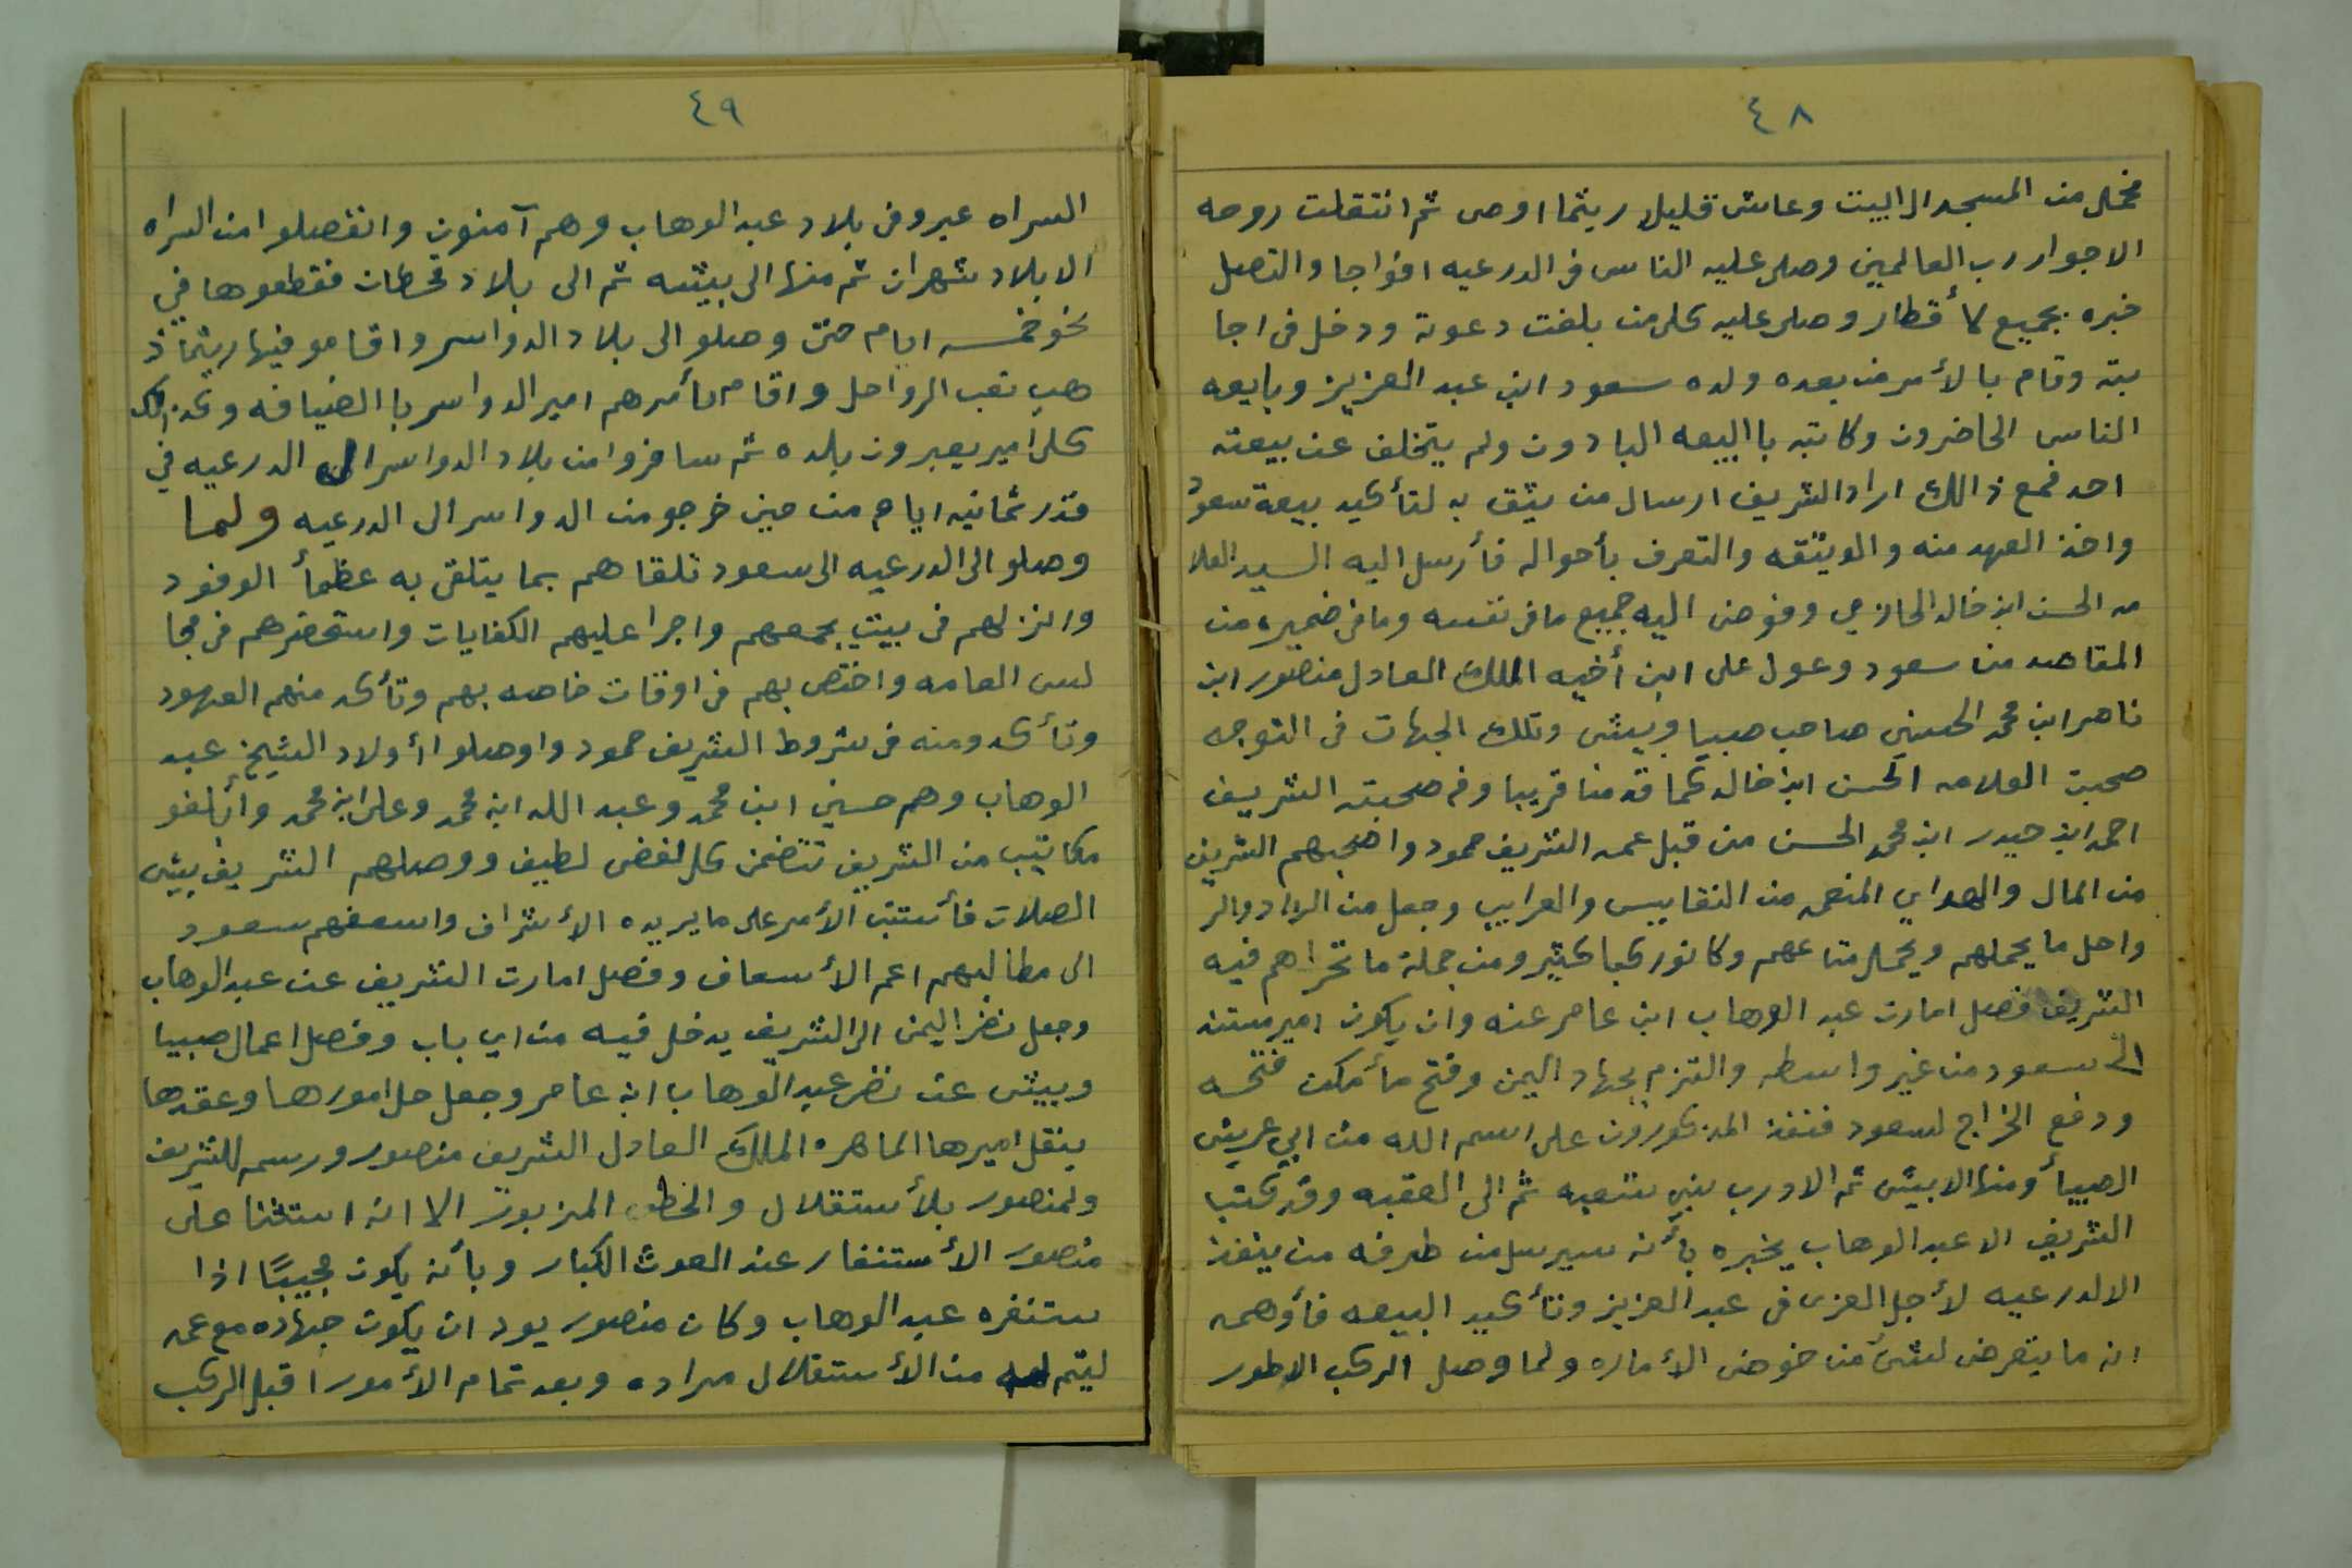 ٤٨
فحمل من المسجد الى البيت وعاش قليل ريثما اوصى ثم انتقلت روحه
الا جوار رب العالمين وصلى عليه الناس فى الدرعيه افواجا واتصل
خبره بجميع لأقطار وصلى عليه كل من بلغت دعوته ودخل فى اجا
بته وقام بالأمر من بعده ولده سعود ابن عبد العزيز وبايعه
الناس الحاضرون وكاتبه باالبيعه البادون ولم يتخلف عن بيعته
احد فمع ذالك اراد الشريف ارسال من يثق به لتأكيد بيعة سعود
واخذ العهد منه والويثقه والتعرف بأحواله فأرسل اليه السيد العلا
مه الحسن ابن خالد الحازمي وفوض اليه جميع ما فى نفسه وما فى ضميره من
المقاصد من سعود وعول على ابن أخيه الملك العادل منصور ابن
ناصر ابن محمد الحسيني صاحب صبيا وبيش وتلك الجهات فى التوجه
صحبت العلامه الحسن ابن خالد كما قدمنا قريبا وفى صحبته الشريف
احمد ابن حيدر ابن محمد الحسن من قبل عمه الشريف حمود واصحبهم الشريف
من المال والهداي المنعمه من النقاييس والغرايب وجعل من الزاد والر
واحل ما يحملهم ويحمل متاعهم وكانو ركبا كثير ومن جملة ما تحراهم فيه
الشريف فصل امارت عبد الوهاب ابن عامر عنه وان يكون امير مستند
الى سعود من غير واسطه والتزم بجهاد اليمن وفتح مأمكن فتحه
ودفع الخراج لسعود فنفذ المذكورون على اسم الله من ابي عريش
الصبيأ ومنها الا بيش ثم الا درب بني شعبه ثم الى العقبه وقد كتب
الشريف الا عبد الوهاب يخبره بأنه سيرسل من طرفه من ينفذ
الا لدرعيه لأجل العزى فى عبد العزيز وتأكيد البيعه فأوهمه
انه ما يتعرض لشئ من خوض الأماره ولما وصل الركب الا طور
٤٩
السراه عبرو فى بلاد عبد الوهاب وهم آمنون وانفصلو امن السراه
الا بلاد شهران ثم منها الى بيشه ثم الى بلاد قحطان فقطعوها في
نحو خمسه ايام حتى وصلو الى بلاد الدواسر واقامو فيها ريثما ذ
هب تعب الرواحل واقام بأمرهم امير الدواسر باالضيافه وكذالك
كل امير يعبرون بلده ثم سافروا من بلاد الدواسر الى الدرعيه في
قدر ثمانيه ايام من حين خرجو من الدواسر الى الدرعيه ولما
وصلو الى الدرعيه الى سعود تلقاهم بما يتلقى به عظمأ الوفود
وانزلهم فى بيت يجمعهم واجرا عليهم الكفايات واستحضرهم فى مجا
لس العامه واختص بهم فى اوقات خاصه بهم وتأكد منهم العهود
وتأكدو منه فى شروط الشريف حمود واوصلوا أولاد الشيخ عبد
الوهاب وهم حسين ابن محمد وعبد الله ابن محمد وعلى ابن محمد وأبلغو
مكاتيب من الشريف تتضمن كل لفض لطيف ووصلهم الشريف بيش
الصلات فأستتب الأمر على ما يريده الأشراف واسعفهم سعود
الى مطالبهم اعم الأسعاف وفصل امارت الشريف عن عبد الوهاب
وجعل نضر اليمن الى الشريف يدخل فيه من اي باب وفصل اعمال صبيا
وبيش عن نضر عبد الوهاب ابن عامر وجعل حل امورها وعقدها
بنقل اميرها الماهره الملك العادل الشريف منصور ورسمه للشريف
ولمنصور بلأستقلال والخطه المزبوره الا انه استثنا على
منصور الأستنفار عند العوث الكبار وبأنه يكون مجيبًا اذا
ستنفره عبد الوهاب وكان منصور يود ان يكون جهاده مع عمه
ليتم له من الأستقلال مراده وبعد تمام الأمور اقبل الركب